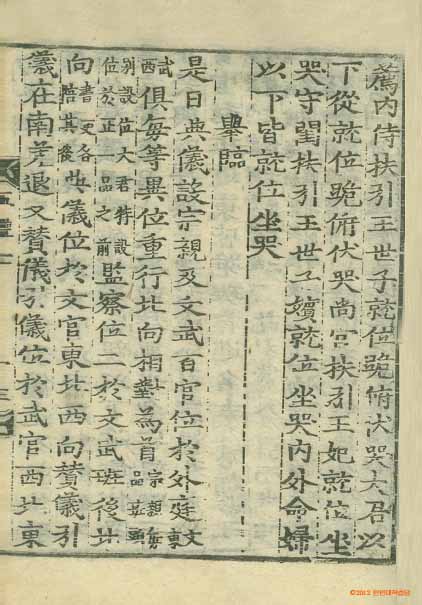 薦內侍扶引王世子就位跪俯伏哭大君以
下從就位跪俯伏哭尚宮扶引王妃就位坐
哭守閨扶引王世子嬪就位坐哭內外命婦
以下皆就位坐哭
舉臨
是日典儀設宗親及文武百官位於外庭文東
武西俱每等異位重行北向相對為首宗親每品班頭
別設位大君特設位於正一品之前監察位二於文武班後北
向書吏各陪其後典儀位於文官東北西向贊儀引
儀在南差退又贊儀引儀位於武官西北東
©2013 인민대학습당